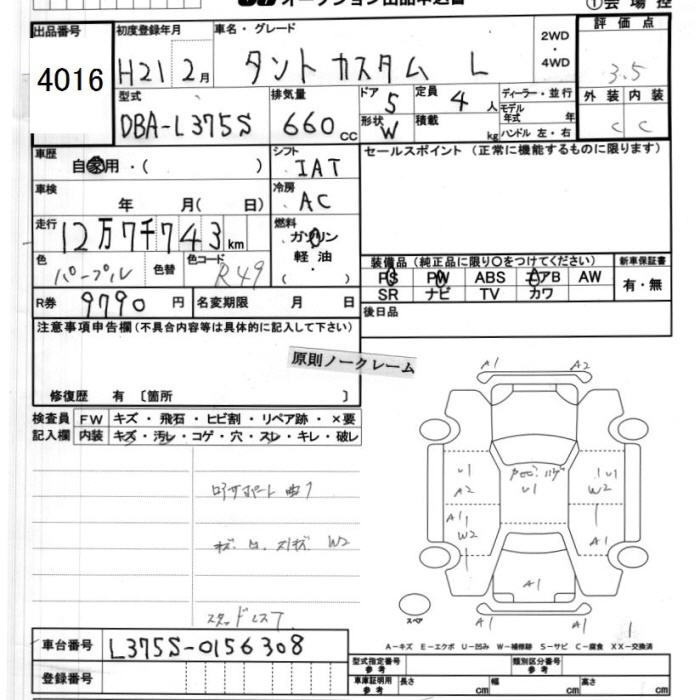 オークション出品申込書 ①会場控
出品番号 初度登録年月 車名・グレード 2WD・4WD 評価点
4016 H21 2月 タントカスタム L 3.5
型式 排気量 ドア 5 定員 4人 ディーラー・並行 外装 内装
DBA-L375S 660cc 形状 W 積載 kg モデル年式 年 C C
ハンドル 左・右
車歴 シフト セールスポイント (正常に機能するものに限ります)
自家用・( ) IAT
車検 冷房
年 月( 日) AC
走行 燃料
12万7千743km ガソリン
軽油
・
( )
色 色替 色コード 装備品(純正品に限り○をつけてください) 新車保証書
パープル R49 PS PW ABS エアB AW 有・無
R券 9790円 名変期限 月 日 SR ナビ TV カワ
注意事項申告欄(不具合内容等は具体的に記入して下さい) 後日品
原則ノークレーム
修復歴 有 〔箇所 〕
検査員 FW キズ・飛石・ヒビ割・リペア跡・×要
記入欄 内装 キズ・汚レ・コゲ・穴・スレ・キレ・破レ
A1 A2
U1 U1 1 U1
A2 W2
A1 1
W2 A1
A1
A1 A1
W2
スタッドレス
スペア
車台番号 L375S-0156308
A-キズ E-エクボ U-凹み W-補修跡 S-サビ C-腐食 XX-交換済
登録番号
型式指定番号 参考 類別区分番号 参考
車庫証明用 参考 長さ cm 幅 cm 高さ cm